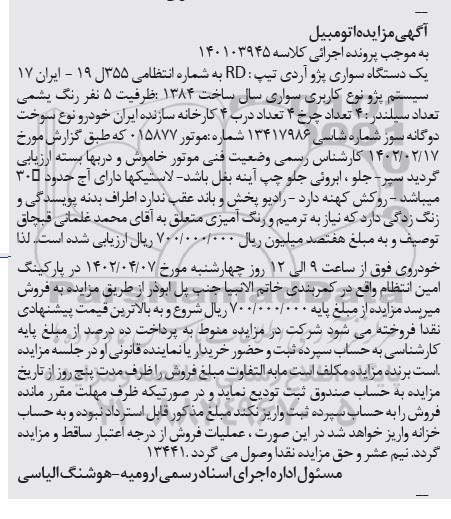 آگهی مزایده اتومبیل
به موجب پرونده اجرائی کلاسه ۱۴۰۱۰۳۹۴۵
یک دستگاه سواری پژو آردی تیپ : RD به شماره انتظامی ۳۵۵ل ۱۹ - ایران ۱۷
سیستم پژو نوع کاربری سواری سال ساخت ۱۳۸۴ :ظرفیت ۵ نفر رنگ یشمی
تعداد سیلندر : ۴ تعداد چرخ ۴ تعداد درب ۴ کارخانه سازنده ایران خودرو نوع سوخت
دوگانه سوز شماره شاسی ۱۳۴۱۷۹۸۶ شماره :موتور ۰۱۵۸۷۷ که طبق گزارش مورخ
۱۴۰۲/۰۲/۱۷ کارشناس رسمی وضعیت فنی موتور خاموش و دربها بسته ارزیابی
گردید سپر- جلو ، ابروئی جلو چپ آینه بغل باشد- لاستیکها دارای آج حدود ۳۰
میباشد - روکش کهنه دارد - رادیو پخش و باند عقب ندارد اطراف بدنه پوسیدگی و
زنگ زدگی دارد که نیاز به ترمیم و رنگ آمیزی متعلق به آقای محمد غلمانی قبچاق
توصیف و به مبلغ هفتصد میلیون ریال ۷۰۰/۰۰۰/۰۰۰ ریال ارزیابی شده است.. لذا
خودروی فوق از ساعت ۹ الی ۱۲ روز چهارشنبه مورخ ۱۴۰۲/۰۴/۰۷ در پارکینگ
امین انتظام واقع در کمربندی خاتم الانبیا جنب پل ابوذر از طریق مزایده به فروش
میرسد مزایده از مبلغ پایه ۷۰۰/۰۰۰/۰۰۰ ریال شروع و به بالاترین قیمت پیشنهادی
نقدا فروخته می شود شرکت در مزایده منوط به پرداخت ده درصد از مبلغ پایه
کارشناسی به حساب سپرده ثبت و حضور خریدار یا نماینده قانونی او در جلسه مزایده
.است برنده مزایده مکلف است مابه التفاوت مبلغ فروش را ظرف مدت پنج روز از تاریخ
مزایده به حساب صندوق ثبت تودیع نماید و در صورتیکه ظرف مهلت مقرر مانده
فروش را به حساب سپرده ثبت واریز نکند مبلغ مذکور قابل استرداد نبوده و به حساب
خزانه واریز خواهد شد در این صورت ، عملیات فروش از درجه اعتبار ساقط و مزایده
گردد. نیم عشر و حق مزایده نقدا وصول می گردد . ۱۳۴۴۱
مسئول اداره اجرای اسناد رسمی ارومیه - هوشنگ الیاسی